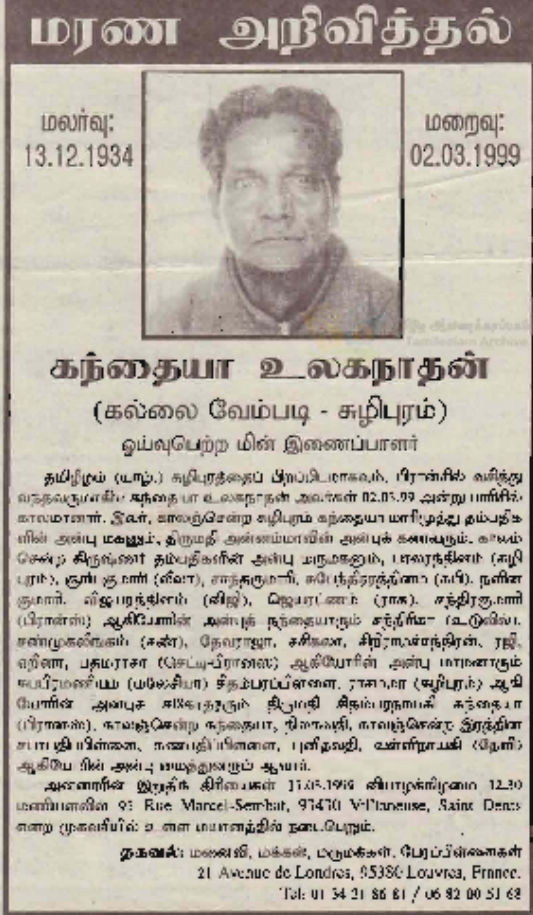 மரண அறிவித்தல்
மலர்வு:
13.12.1934
மறைவு:
02.03.1999
கந்தையா உலகநாதன்
(கல்லை வேம்படி - சுழிபுரம்)
ஓய்வுபெற்ற மின் இணைப்பாளர்
தமிழீழம் (யாழ்.) சுழிபுரத்தைப் பிறப்பிடமாகவும், பிரான்சில் வசித்து
வந்தவருமாகிய கந்தையா உலகநாதன் அவர்கள் 02.03.99 அன்று பாரிசில்
காலமானார். இவர், காலஞ்சென்ற சுழிபுரம் கந்தையா மாரிமுத்து தம்பதிக
ளின் அன்பு மகனும், திருமதி அன்னம்மாவின் அன்புக் கணவரும், காலம்
சென்ற கிருஷ்ணர் தம்பதிகளின் அன்பு மருமகனும், பாலரத்தினம் (சுழி
புரம்), (லீலா), சாந்தகுமாரி, (சுபி), நளின
குமார், விஜயரத்தினம் (விஜி), ஜெயரட்ணம் (ராசு), சந்திரகுமாரி
(பிரான்ஸ்) ஆகியோரின் அன்புத் தந்தையாரும் (உடுவில்),
சண்முகலிங்கம் (சண்), தேவராஜா, சசிகலா, சிறிராமச்சந்திரன், ரஜி,
பத்மராசா ஆகியோரின் அன்பு மாமனாரும்
சுப்பிரமணியம் (மலேசியா) சிதம்பரப்பிள்ளை, ராசம்மா (சுழிபுரம்) ஆகி
யோரின் அன்புச் சகோதரரும் திருமதி சிதம்பரநாயகி கந்தையா
(பிரான்ஸ்), காலஞ்சென்ற கந்தையா, காலஞ்சென்ற இரத்தின
சபாபதிப்பிள்ளை, கணபதிப்பிள்ளை, புனிதவதி, வள்ளிநாயகி
ஆகியோரின் அன்பு மைத்துனரும் ஆவார்.
அன்னாரின் இறுதிக் கிரியைகள் வியாழக்கிழமை 12.30
மணியளவில் 95 Rue Marcel-Sembat, 93430 Villetaneuse, Saint Denis
என்ற முகவரியில் உள்ள மயானத்தில் நடைபெறும்.
தகவல்: மனைவி, மக்கள், மருமக்கள், பேரப்பிள்ளைகள்
21 Avenue de Londres, 95380 Louvres, France.
Tel: 01 34 21 86 81 / 06 82 00 51 68